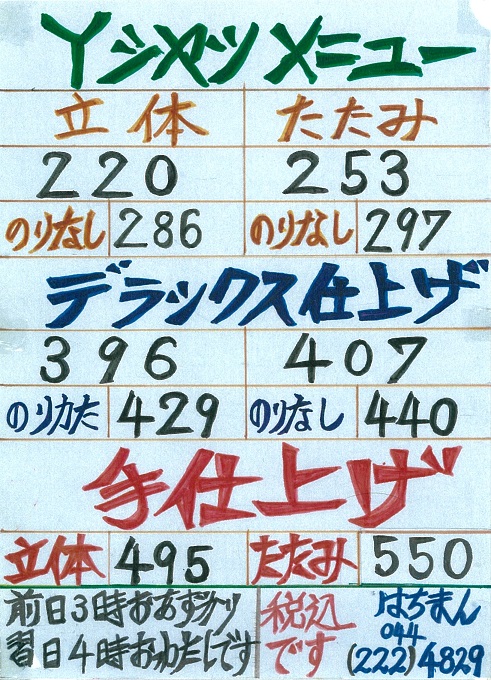 Yシャツメニュー
立体 たたみ
220 253
のりなし 286 のりなし 297
デラックス仕上げ
396 407
のりカタ 429 のりなし 440
手仕上げ
立体 495 たたみ 550
前日3時おあずかり 税込 はちまん
翌日4時おわたしです です 044
(222)4829